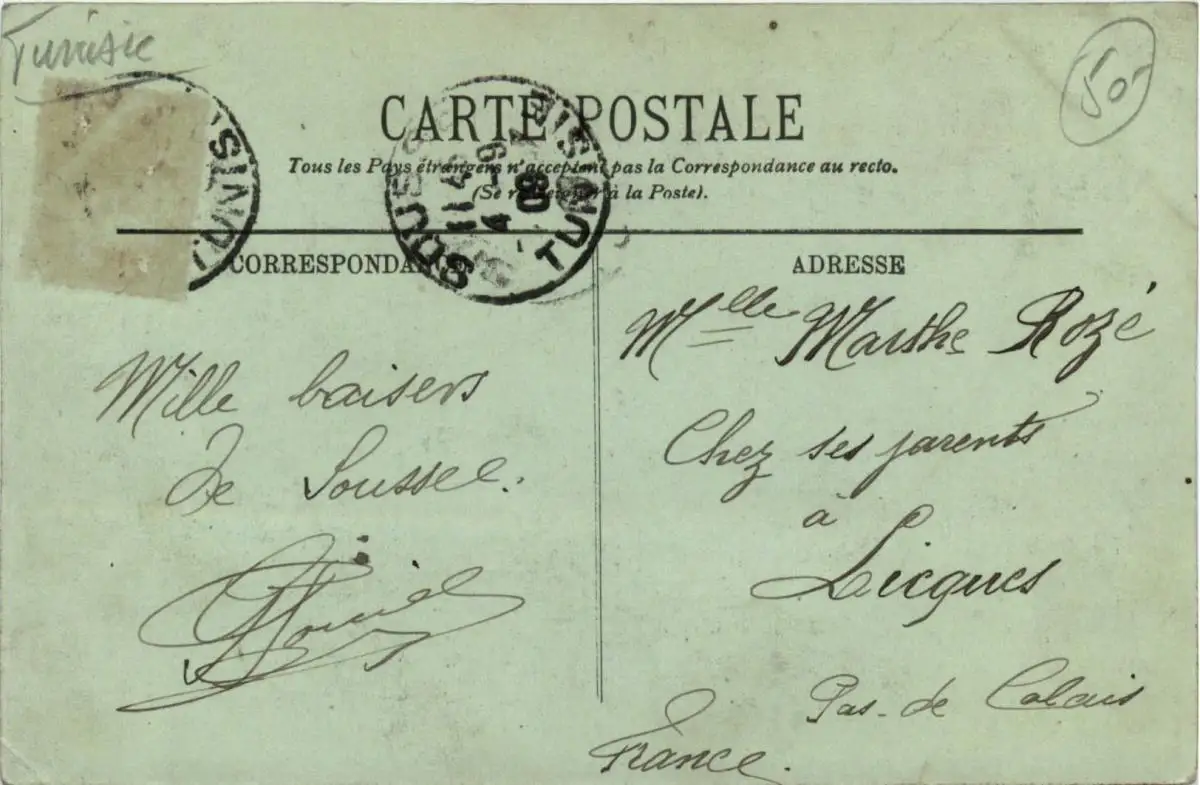 Tunisie
50-
CARTE POSTALE
Tous les Pays étrangers n'acceptent pas la Correspondance au recto.
(Se renseigner à la Poste).
TUNISI
SOUSSE
TUNISIE
11 45
4 -9
08
CORRESPONDANCE
ADRESSE
Mille baisers
de Soussee.
Mlle Marthe Rozé
Chez ses parents
à
Licques
Pas-de Calais
France.